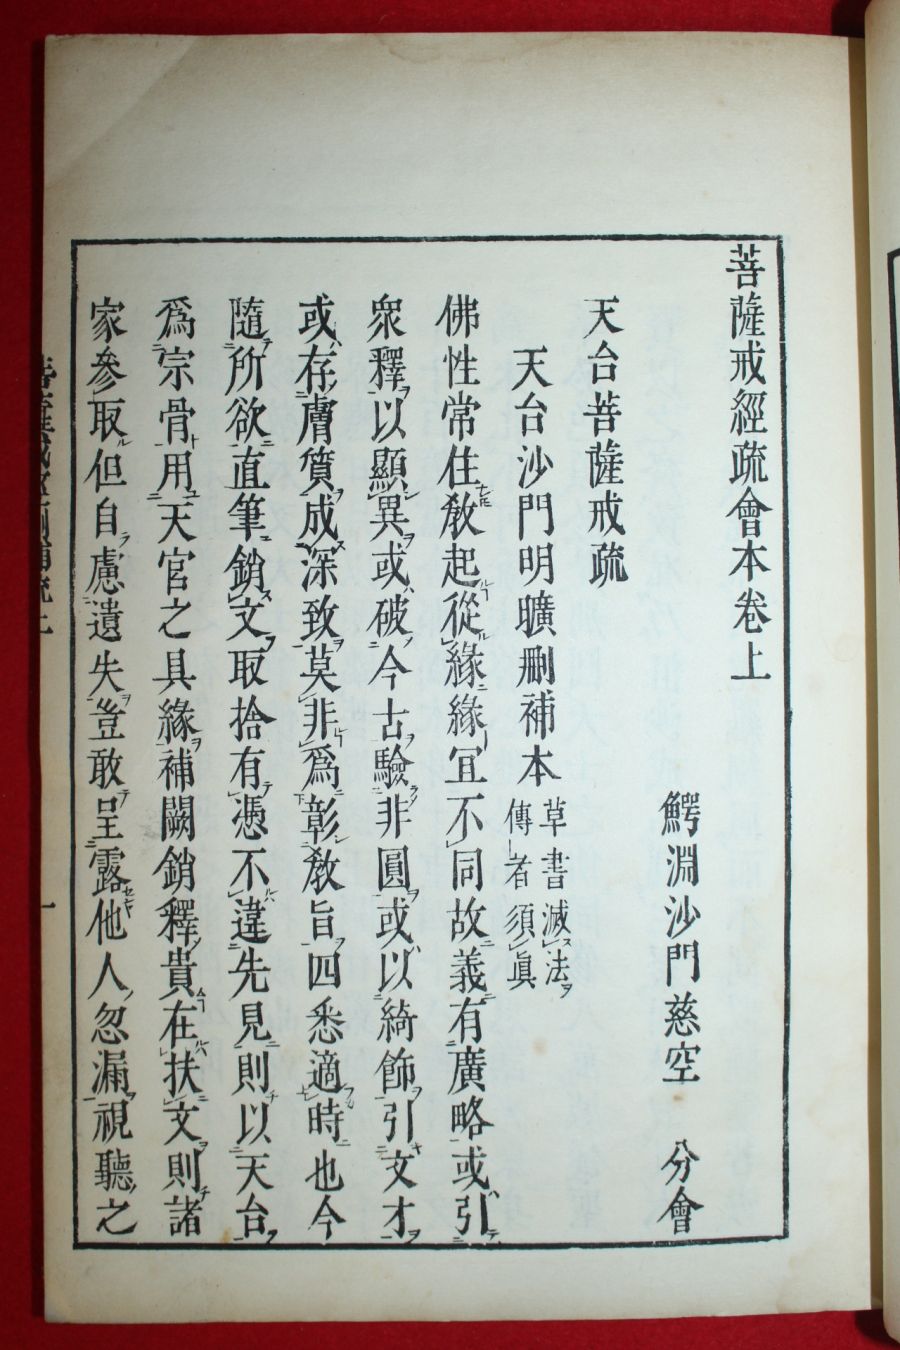 菩薩戒經疏會本卷上
鰐淵沙門慈空　分會
天台菩薩戒疏
天台沙門明曠删補本
草書滅法
傳者須眞
佛性常住敎起從緣緣冝不同故義有廣略或引
衆釋以顯異或破今古驗非圓或以綺飾引文才
或存膚質成深致莫非爲彰敎旨四悉適時也今
隨所欲直筆銷文取捨有憑不違先見則以天台
爲宗骨用天官之具緣補闕銷釋貴在扶文則諸
家參取但自慮遺失豈敢呈露他人忽漏視聽之
一